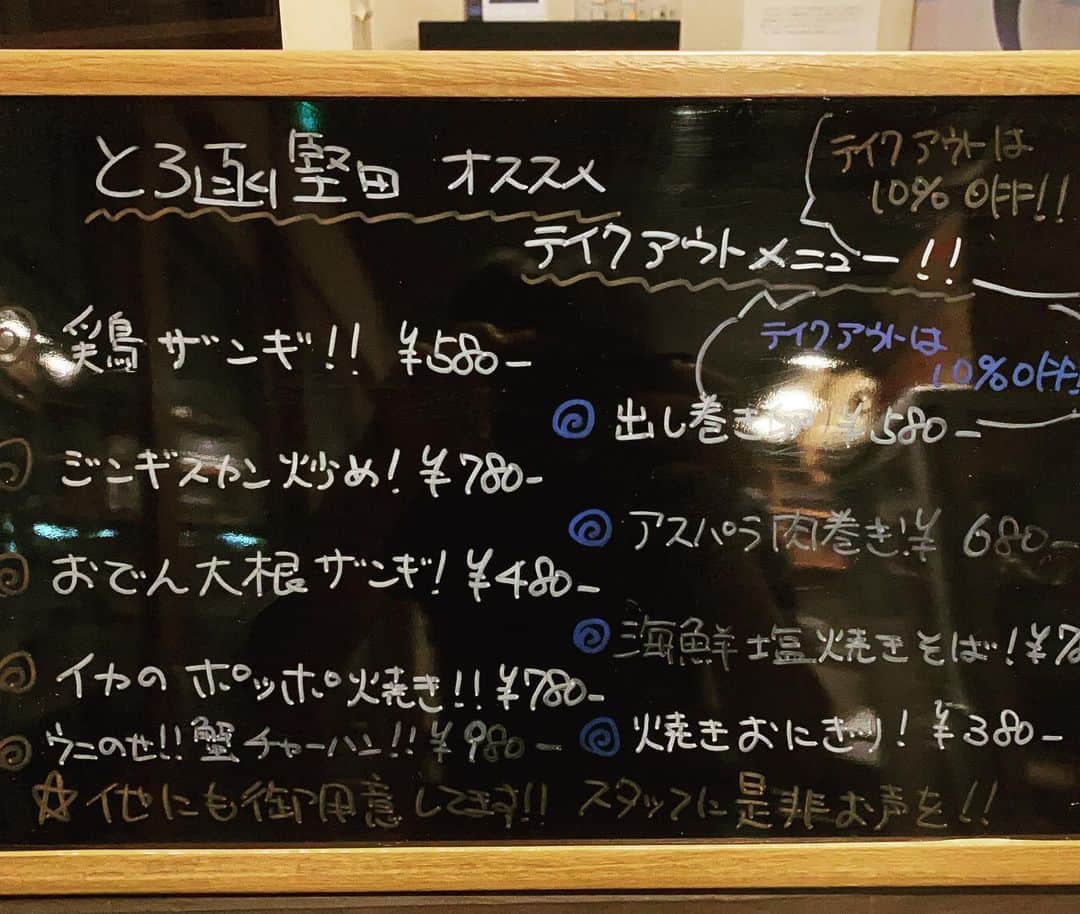 とろ函堅田 オススメ
テイクアウトメニュー!!
テイクアウトは
10%OFF!!
テイクアウトは
10%OFF
鶏ザンギ!! ¥580-
ジンギスカン炒め! ¥780-
おでん大根ザンギ! ¥480-
イカのポッポ焼き!! ¥780-
ウニのせ!! 蟹チャーハン!! ¥980-
出し巻き ! ¥580-
アスパラ肉巻き! ¥680-
海鮮塩焼きそば! ¥7
焼きおにぎり! ¥380-
☆他にも御用意してます!! スタッフに是非お声を!!